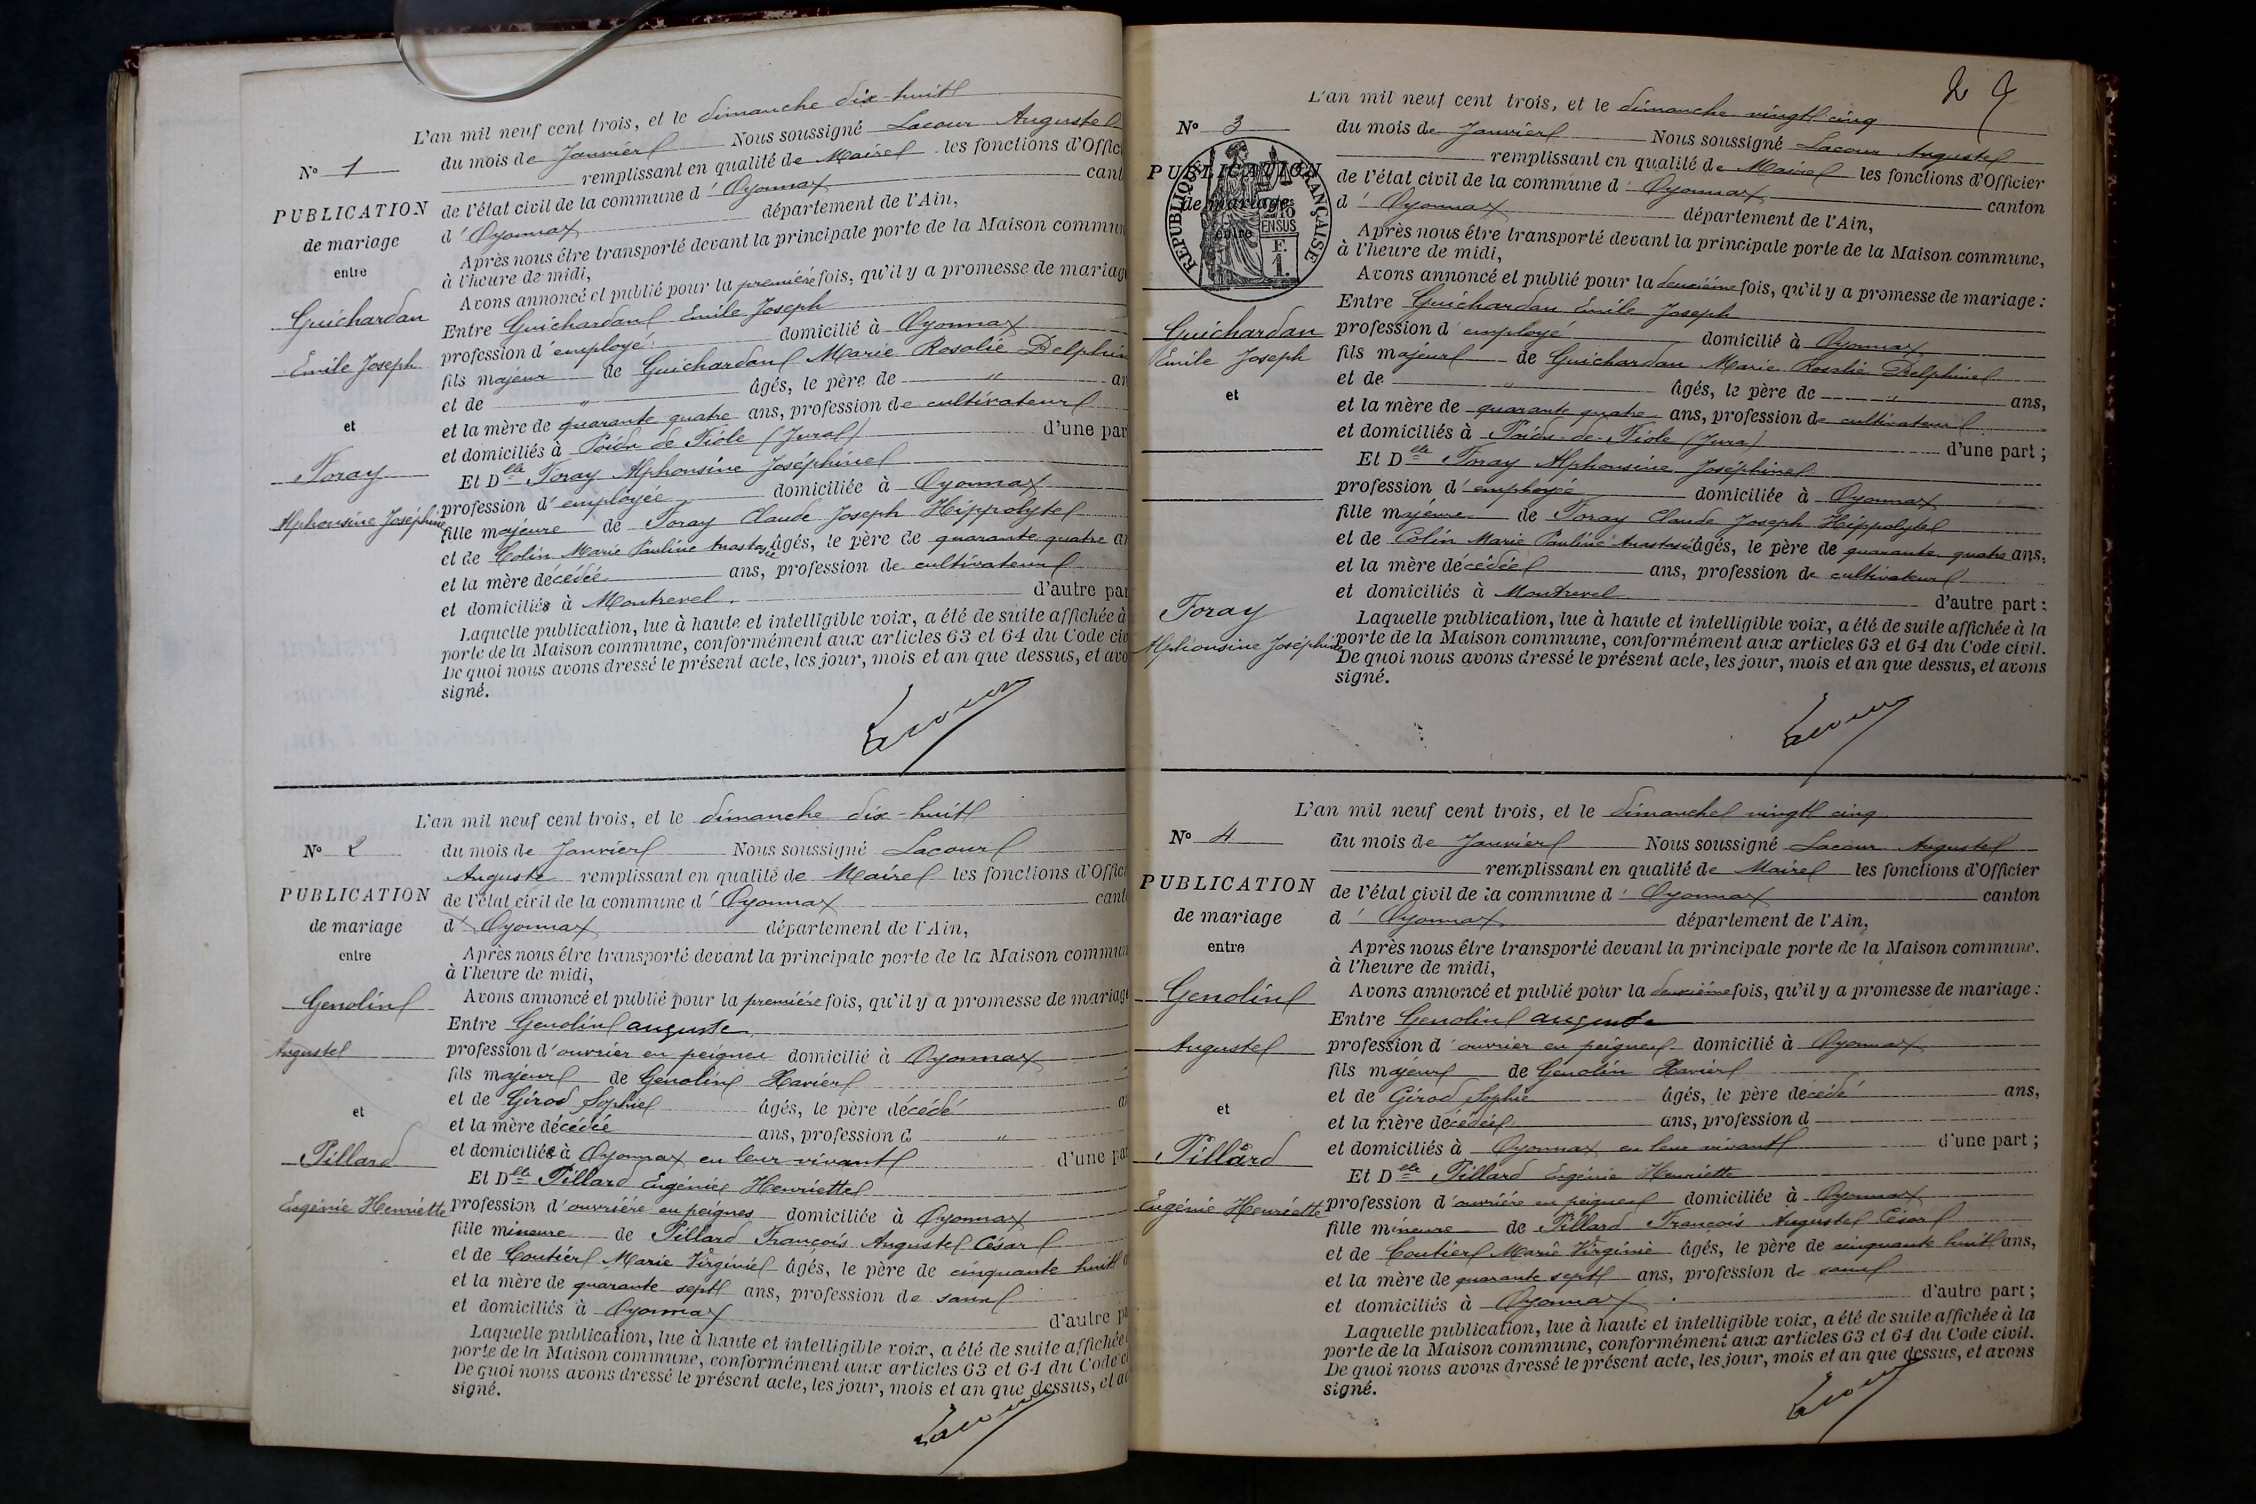 L'an mil neuf cent trois, et le dimanche dix-huit
N° 1
du mois de Janvier Nous soussigné Lacour Auguste
remplissant en qualité de Maire les fonctions d'Offic
PUBLICATION
de l'état civil de la commune d' Oyonnax cant
de mariage
d' Oyonnax département de l'Ain,
entre
Après nous être transporté devant la principale porte de la Maison commun
à l'heure de midi,
Avons annoncé et publié pour la première fois, qu'il y a promesse de mariag
Guichardan
Entre Guichardan Emile Joseph
Emile Joseph
profession d'employé domicilié à Oyonnax
fils majeur de Guichardan Marie Rosalie Delphin
et de " âgés, le père de " an
et
et la mère de quarante quatre ans, profession de cultivateur
et domiciliés à Poids de Fiole (Jura) d'une par
Foray
Et Delle Foray Alphonsine Joséphine
profession d'employée domiciliée à Oyonnax
Alphonsine Joséphine
fille majeure de Foray Claude Joseph Hippolyte
et de Colin Marie Pauline Anastasie âgés, le père de quarante quatre an
et la mère décédée ans, profession de cultivateur
et domiciliés à Montrevel d'autre par
Laquelle publication, lue à haute et intelligible voix, a été de suite affichée à
porte de la Maison commune, conformément aux articles 63 et 64 du Code civ
De quoi nous avons dressé le présent acte, les jour, mois et an que dessus, et avo
signé.
Lacour
L'an mil neuf cent trois, et le dimanche dix-huit
N° 2
du mois de Janvier Nous soussigné Lacour
Auguste remplissant en qualité de Maire les fonctions d'Offici
PUBLICATION
de l'état civil de la commune d' Oyonnax canto
de mariage
d' Oyonnax département de l'Ain,
entre
Après nous être transporté devant la principale porte de la Maison commun
à l'heure de midi,
Genolin
Avons annoncé et publié pour la première fois, qu'il y a promesse de mariage
Entre Genolin auguste
Auguste
profession d'ouvrier en peignes domicilié à Oyonnax
fils majeur de Genolin Xavier
et de Girod Sophie âgés, le père décédé a
et
et la mère décédée ans, profession d "
et domiciliés à Oyonnax en leur vivant d'une par
Pillard
Et Delle Pillard Eugénie Henriette
Eugénie Henriette
profession d'ouvrière en peignes domiciliée à Oyonnax
fille mineure de Pillard François Auguste César
et de Coutier Marie Virginie âgés, le père de cinquante huit a
et la mère de quarante sept ans, profession de sans
et domiciliés à Oyonnax d'autre pa
Laquelle publication, lue à haute et intelligible voix, a été de suite affichée
porte de la Maison commune, conformément aux articles 63 et 64 du Code c
De quoi nous avons dressé le présent acte, les jour, mois et an que dessus, et a
signé.
Lacour
L'an mil neuf cent trois, et le dimanche vingt cinq
N° 3
du mois de Janvier Nous soussigné Lacour Auguste
remplissant en qualité de Maire les fonctions d'Officier
PUBLICATION
RÉPUBLIQUE FRANÇAISE
E.
1.
de l'état civil de la commune d' Oyonnax canton
de mariage
d' Oyonnax département de l'Ain,
entre
Après nous être transporté devant la principale porte de la Maison commune,
à l'heure de midi,
Avons annoncé et publié pour la deuxième fois, qu'il y a promesse de mariage :
Entre Guichardan Emile Joseph
Guichardan
profession d'employé domicilié à Oyonnax
Emile Joseph
fils majeur de Guichardan Marie Rosalie Delphine
et de " âgés, le père de " ans,
et
et la mère de quarante quatre ans, profession de cultivateur
et domiciliés à Poids-de-Fiole (Jura) d'une part ;
Et Delle Foray Alphonsine Joséphine
profession d'employée domiciliée à Oyonnax
fille majeure de Foray Claude Joseph Hippolyte
et de Colin Marie Pauline Anastasie âgés, le père de quarante quatre ans,
et la mère décédée ans, profession de cultivateur
et domiciliés à Montrevel d'autre part :
Foray
Alphonsine Joséphine
Laquelle publication, lue à haute et intelligible voix, a été de suite affichée à la
porte de la Maison commune, conformément aux articles 63 et 64 du Code civil.
De quoi nous avons dressé le présent acte, les jour, mois et an que dessus, et avons
signé.
Lacour
L'an mil neuf cent trois, et le dimanche vingt cinq
N° 4
du mois de Janvier Nous soussigné Lacour Auguste
remplissant en qualité de Maire les fonctions d'Officier
PUBLICATION
de l'état civil de la commune d' Oyonnax canton
de mariage
d' Oyonnax département de l'Ain,
entre
Après nous être transporté devant la principale porte de la Maison commune.
à l'heure de midi,
Genolin
Avons annoncé et publié pour la deuxième fois, qu'il y a promesse de mariage :
Entre Genolin auguste
Auguste
profession d'ouvrier en peignes domicilié à Oyonnax
fils majeur de Genolin Xavier
et de Girod Sophie âgés, le père décédé ans,
et
et la mère décédée ans, profession d
et domiciliés à Oyonnax en leur vivant d'une part ;
Pillard
Et Delle Pillard Eugénie Henriette
Eugénie Henriette
profession d'ouvrière en peignes domiciliée à Oyonnax
fille mineure de Pillard François Auguste César
et de Coutier Marie Virginie âgés, le père de cinquante huit ans,
et la mère de quarante sept ans, profession de sans
et domiciliés à Oyonnax d'autre part ;
Laquelle publication, lue à haute et intelligible voix, a été de suite affichée à la
porte de la Maison commune, conformément aux articles 63 et 64 du Code civil.
De quoi nous avons dressé le présent acte, les jour, mois et an que dessus, et avons
signé.
Lacour